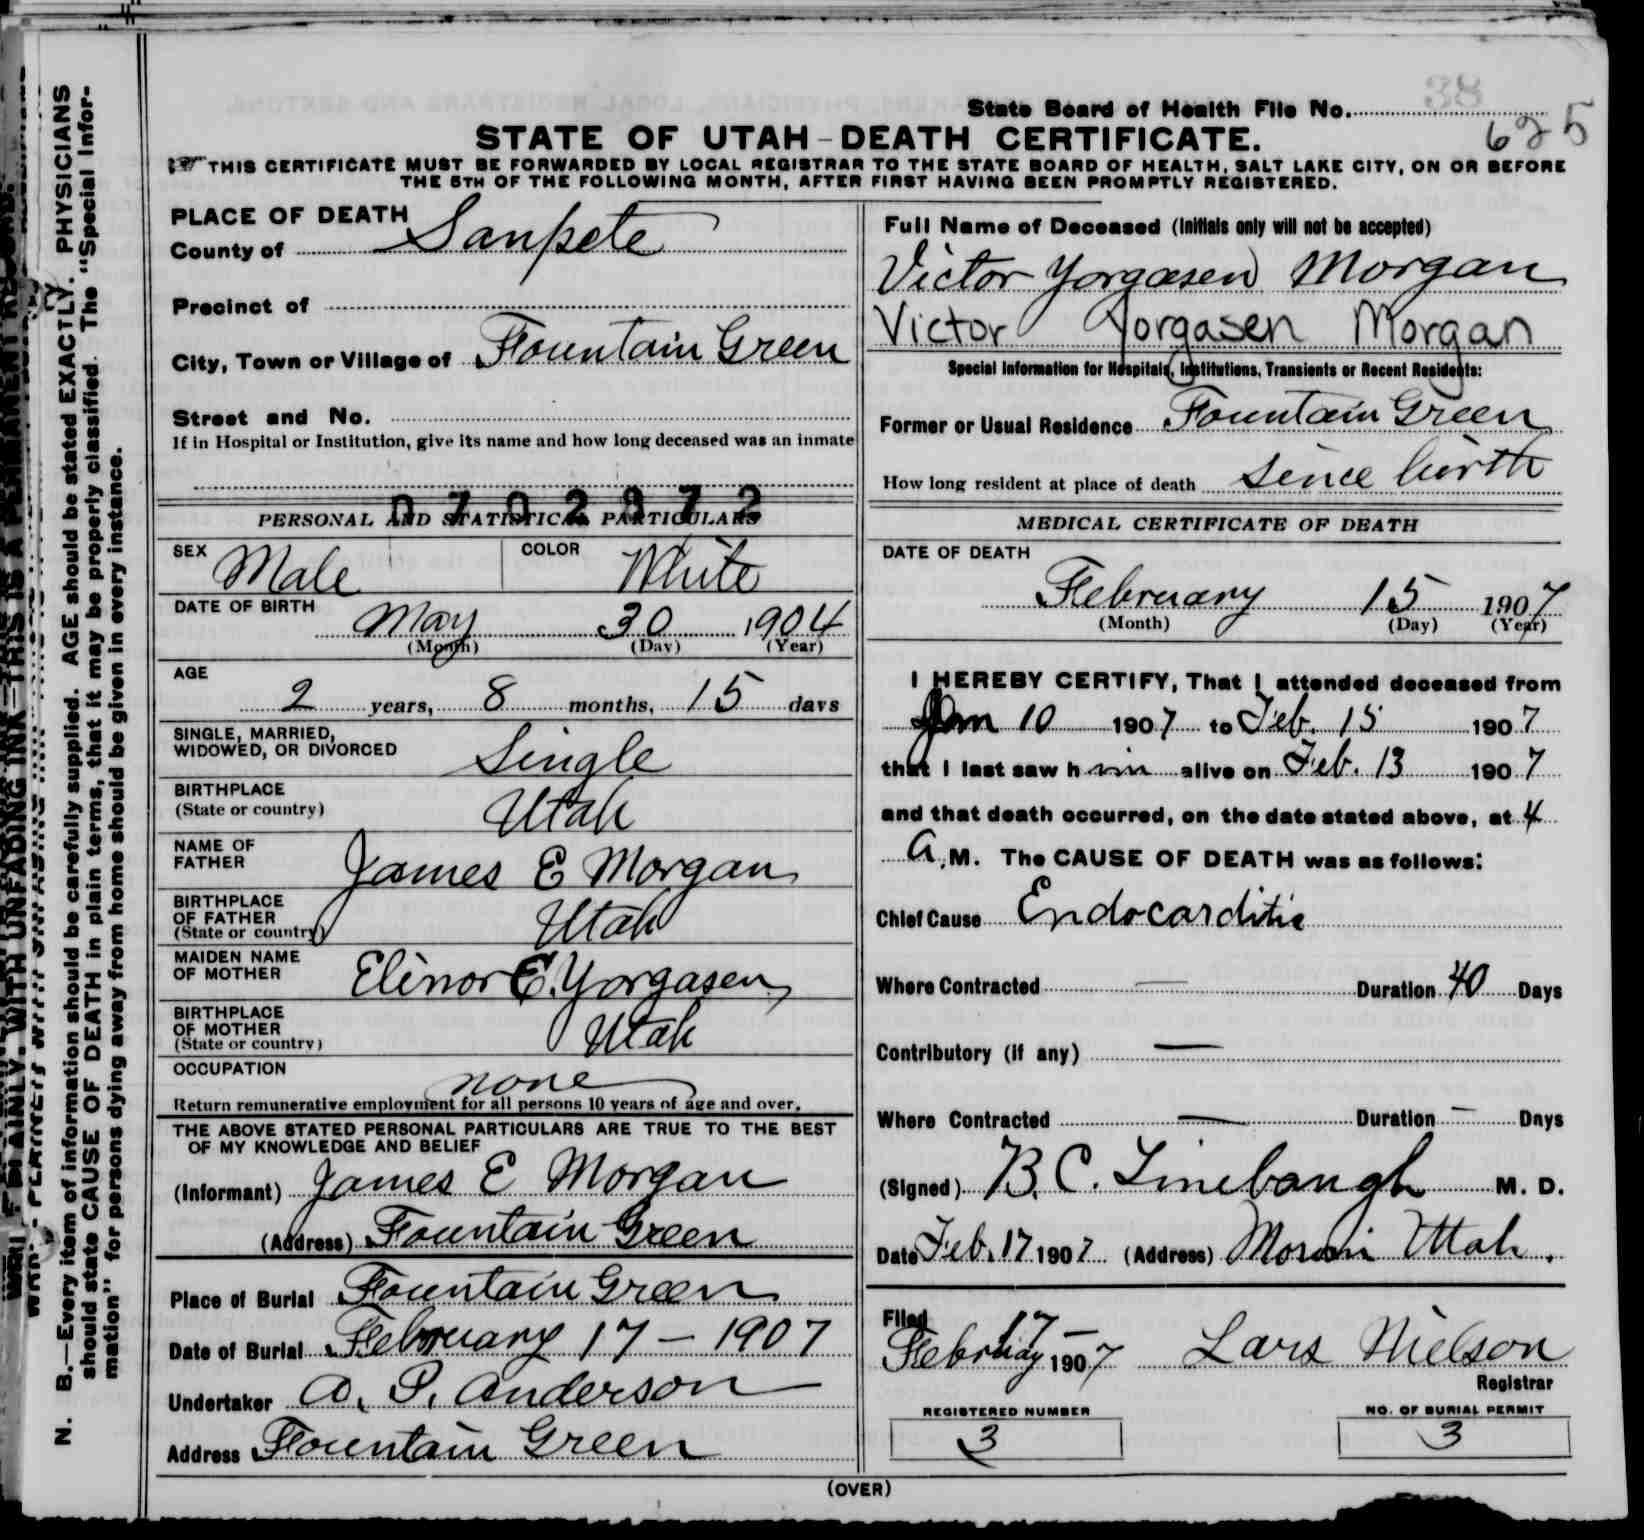 38
State Board of Health File No.
625
STATE OF UTAH - DEATH CERTIFICATE.
THIS CERTIFICATE MUST BE FORWARDED BY LOCAL REGISTRAR TO THE STATE BOARD OF HEALTH, SALT LAKE CITY, ON OR BEFORE
THE 5TH OF THE FOLLOWING MONTH, AFTER FIRST HAVING BEEN PROMPTLY REGISTERED.
PLACE OF DEATH
County of Sanpete
Precinct of
City, Town or Village of Fountain Green
Street and No.
If in Hospital or Institution, give its name and how long deceased was an inmate
0702872
PERSONAL AND STATISTICAL PARTICULARS
SEX Male COLOR White
DATE OF BIRTH
May 30 1904
(Month) (Day) (Year)
AGE
2 years, 8 months, 15 days
SINGLE, MARRIED,
WIDOWED, OR DIVORCED Single
BIRTHPLACE
(State or country) Utah
NAME OF
FATHER James E Morgan
BIRTHPLACE
OF FATHER
(State or country) Utah
MAIDEN NAME
OF MOTHER Elinor E. Yorgasen
BIRTHPLACE
OF MOTHER
(State or country) Utah
OCCUPATION
none
Return remunerative employment for all persons 10 years of age and over.
THE ABOVE STATED PERSONAL PARTICULARS ARE TRUE TO THE BEST
OF MY KNOWLEDGE AND BELIEF
(Informant) James E Morgan
(Address) Fountain Green
Place of Burial Fountain Green
Date of Burial February 17 - 1907
Undertaker A. P. Anderson
Address Fountain Green
Full Name of Deceased (Initials only will not be accepted)
Victor Yorgasen Morgan
Victor Yorgasen Morgan
Special Information for Hospitals, Institutions, Transients or Recent Residents:
Former or Usual Residence Fountain Green
How long resident at place of death Since birth
MEDICAL CERTIFICATE OF DEATH
DATE OF DEATH
February 15 1907
(Month) (Day) (Year)
I HEREBY CERTIFY, That I attended deceased from
Jan 10 1907 to Feb. 15 1907
that I last saw him alive on Feb. 13 1907
and that death occurred, on the date stated above, at 4
A.M. The CAUSE OF DEATH was as follows:
Chief Cause Endocarditis
Where Contracted — Duration 40 Days
Contributory (if any) —
Where Contracted — Duration — Days
(Signed) B. C. Linebaugh M. D.
Date Feb. 17 1907 (Address) Moroni Utah.
Filed 17 -
February 1907 Lars Nielson
Registrar
REGISTERED NUMBER
3
NO. OF BURIAL PERMIT
3
(OVER)
N. B.—Every item of information should be carefully supplied. AGE should be stated EXACTLY. PHYSICIANS
should state CAUSE OF DEATH in plain terms, that it may be properly classified. The "Special Infor-
mation" for persons dying away from home should be given in every instance.